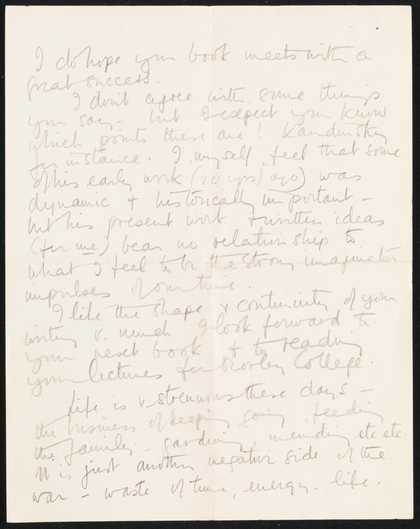 I do hope your book meets with a
great success.
I don't agree with some things
you say – but I expect you know
which points these are! Kandinsky
for instance. I, myself, feel that some
of his early work (20 yrs ago) was
dynamic & historically important –
but his present work & written ideas
(for me) bear no relationship to
what I feel to be the strong imaginative
impulses of our time.
I like the shape & continuity of your
writing v. much & look forward to
your next book & to reading
your lectures for Morley College.
Life is v strenuous these days –
the business of keeping going feeding
the family – gardening, mending etc etc
It is just another negative side of the
war – waste of time, energy – life.